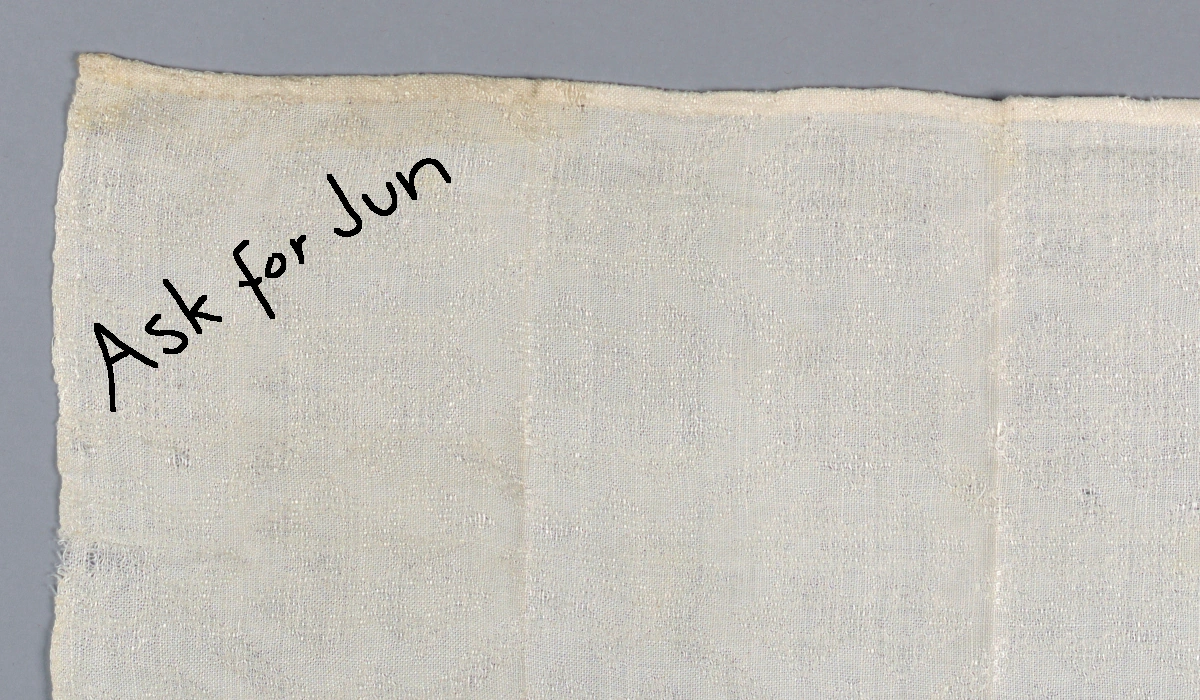 Ask for Jun